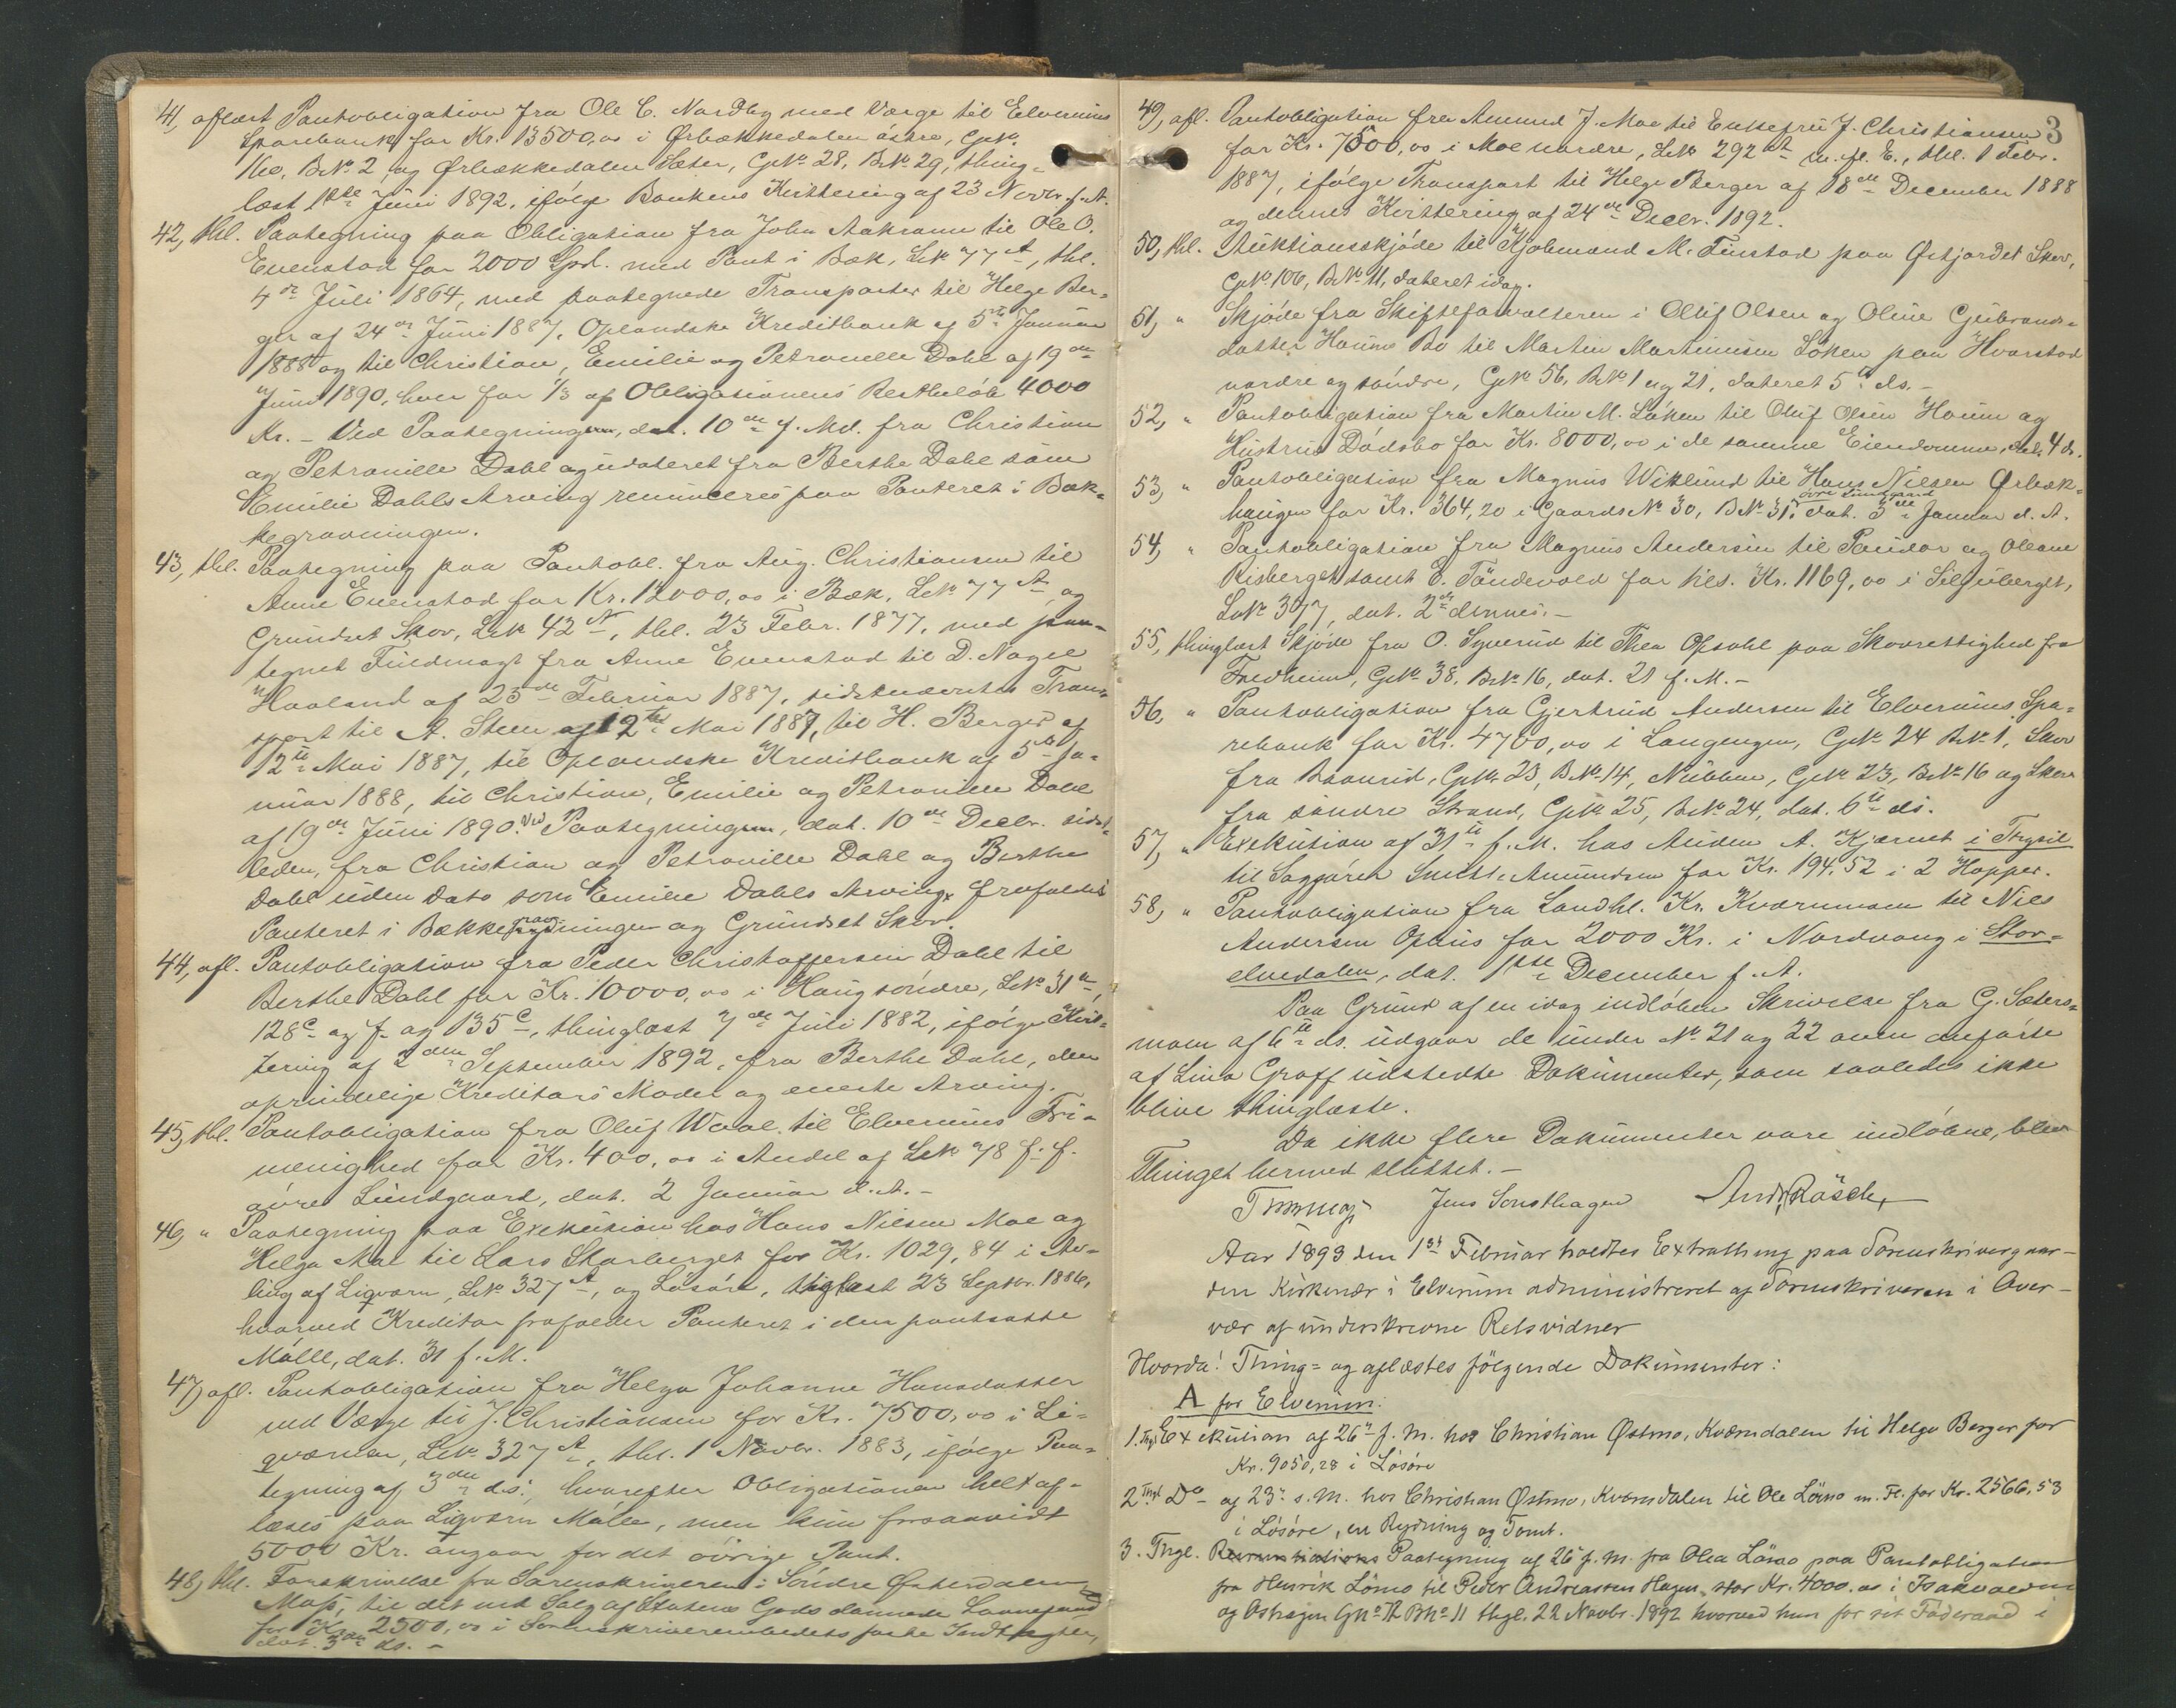 41, aflæst Pantobligation fra Ole C. Nordby med Værge til Elverums
Sparebank for Kr. 13500,00 i Ørbækkedalen østre, G№
160, B№ 2 og Ørbækkedalen Sæter, G№ 28, B№ 29, thing-
læst 1ste Juni 1892, ifølge Bankens Kvittering af 23 Novbr. f. A.
42, thl. Paategning paa Obligation fra John Aakrann til Ole O.
Evenstad for 2000 Spd. med Pant i Bæk, L№ 77 A, thl.
4de Juli 1864, med paategnede Transporter til Helge Ber-
ger af 24de Juni 1887, Oplandske Kreditbank af 5te Januar
1888 og til Christian, Emilie og Petronelle Dahl af 19de
Juni 1890, hver for 1/3 af Obligationens Restbeløb 4000
Kr. – Ved Paategning, dat. 10de f. Md. fra Christian
og Petronille Dahl og udateret fra Berthe Dahl som
Emilie Dahls Arving renunceres paa Panteret i Bæk-
kegravningen.
43, thl. Paategning paa Pantobl. fra Aug. Christiansen til
Anne Evenstad for Kr. 12000,00 i Bæk, L№ 77 A og
Grundset Skov, L№ 42 N, thl. 23 Febr. 1877, med paa-
tegnet Fuldmagt fra Anne Evenstad til D. Nagel
Haaland af 25de Februar 1887, sidstnævntes Trans-
port til A. Steen af 12te Mai 1887, til H. Berger af
12te Mai 1887, til Oplandske Kreditbank af 5te Ja-
nuar 1888, til Christian, Emilie og Petronille Dahl
af 19de Juni 1890. Ved Paategning, dat. 10de Decbr. sidst-
leden, fra Christian og Petronille Dahl og Berthe
Dahl uden Dato som Emilie Dahls Arving frafaldes
Panteret i Bækkegravningen og Grundset Skov.
44, afl. Pantobligation fra Peder Christoffersen Dahl til
Berthe Dahl for Kr. 10000,00 i Haug søndre, L№ 31 a,
128 c og f og 135 c, thinglæst 7de Juli 1882, ifølge Kvit-
tering af 2den September 1892, fra Berthe Dahl, den
oprindelige Kreditors Moder og eneste Arving.
45, thl. Pantobligation fra Oluf Waal til Elverums Fri-
menighed for Kr. 400,00 i Andel af L№ 78 f. f.
øvre Lundgaard, dat. 2 Januar d. A. –
46, " Paategning paa Exekution hos Hans Nilsen Moe og
Helga Moe til Lars Skarberget for Kr. 1029,84 i Av-
ling af Liqvarn, L№ 327 A, og Løsøre, thglæst 23 Septbr. 1886,
hvorved Kreditor frafalder Panteret i den pantsatte
Mølle, dat. 31 f. M.
47, afl. Pantobligation fra Helga Johanne Hansdatter
med Værge til J. Christiansen for Kr. 7500,00 i Li-
qværnen, L№ 327 A, thl. 1 Novbr. 1883, ifølge Paa-
tegning af 3die ds., hvorefter Obligationen helt af-
læses paa Liqvarn Mølle, men kun forsaavidt
5000 Kr. angaar for det øvrige Pant.
48, thl. Forskrivelse fra Sorenskriveren i Søndre Østerdalen
Mos, til det ved Salg af Statens Gods dannede Laanefond
for Kr. 2500,00 i Sorenskriverembedets faste Indtægter,
dat. 3die ds. –
3
49, afl. Pantobligation fra Amund J. Moe til Enkefru J. Christiansen
for Kr. 7500,00 i Moe nordre, L№ 292 m. fl. E., thl. 1 Febr.
1887, ifølge Transport til Helge Berger af 18de December 1888
og dennes Kvittering af 24de Decbr. 1892.
50, thl. Auktionsskjøde til Kjøbmand M. Finstad paa Østjordet Skov,
G№ 106, B№ 11, dateret idag.
51, " Skjøde fra Skifteforvalteren i Oluf Olsen og Oline Gulbrands-
datter Houms Bo til Martin Martinusen Løken paa Hvarstad
nordre og søndre, G№ 56, B№ 1 og 21, dateret 5te ds. –
52, " Pantobligation fra Martin M. Løken til Oluf Olsen Houm og
Hustrus Dødsbo for Kr. 8000,00 i de samme Eiendomme, dat. 4 ds.
53, " Pantobligation fra Magnus Wiklund til Hans Nilsen Ørbæk-
haugen for Kr. 364,20 i Gaards№ 30, B№ 31, øvre Lundgaard dat. 3die Januar d. A.
54, " Pantobligation fra Magnus Andersen til Peder og Oleane
Risberget samt E. Tandevold for tils. Kr. 1169,00 i Siljuberget,
L№ 377, dat. 2den dennes. –
55, thinglæst Skjøde fra O. Syverud til Thea Opsahl paa Skovrettighed fra
Fredheim, G№ 38, B№ 16, dat. 21 f. M. –
56, " Pantobligation fra Gjertrud Andersen til Elverums Spa-
rebank for Kr. 4700,00 i Langengen, G№ 24 B№ 1, Skov
fra Braarud, G№ 23, B№ 14, Nubben, G№ 23, B№ 16 og Skov
fra søndre Strand, G№ 25, B№ 24, dat. 6te ds.
57, " Exekution af 31te f. M. hos Auden A. Kjærnet i Trysil
til Sagfører Amundsen for Kr. 194,52 i 2 Hopper.
58, " Pantobligation fra Landhl. Kr. Kværnmoen til Nils
Andersen Ophus for 2000 Kr. i Nordvang i Stor-
elvedalen, dat. 1ste December f. A.
Paa Grund af en idag indløben Skrivelse fra G. Sæters-
moen af 6te ds. udgaar de under № 21 og 22 oven anførte
af Lina Graff udstedte Dokumenter, som saaledes ikke
blive thinglæste.
Da ikke flere Dokumenter vare indløbne, blev
Thinget hermed sluttet. –
Jens Sorsthagen Andr. Røsch
Aar 1893 den 1ste Februar holdtes Extrathing paa Sorenskrivergaar-
den Kirkenær i Elverum administreret af Sorenskriveren i Over-
vær af underskrevne Retsvidner
Hvorda! Thing- og aflæstes følgende Dokumenter:
A for Elverum.
1. Thgl. Exekution af 26de f. M. hos Christian Østmo, Kværndalen til Helge Berger for
Kr. 9050,28 i Løsøre
2 Thgl Do af 23de s. M. hos Christian Østmo, Kværndalen til Ole Lömo m. Fl. for Kr. 2566,53
i Løsøre, en Rydning og Tomt.
3. Thgl. Paategning af 26 f. M. fra Olea Lömo paa Pantobligation
fra Henrik Lömo til Peder Andreassen Hagen stor Kr. 4000.00 i
og Osthagen G№ 72 B№ 11 thgl. 22 Novbr. 1892 hvorved hun for sit Føderaad i